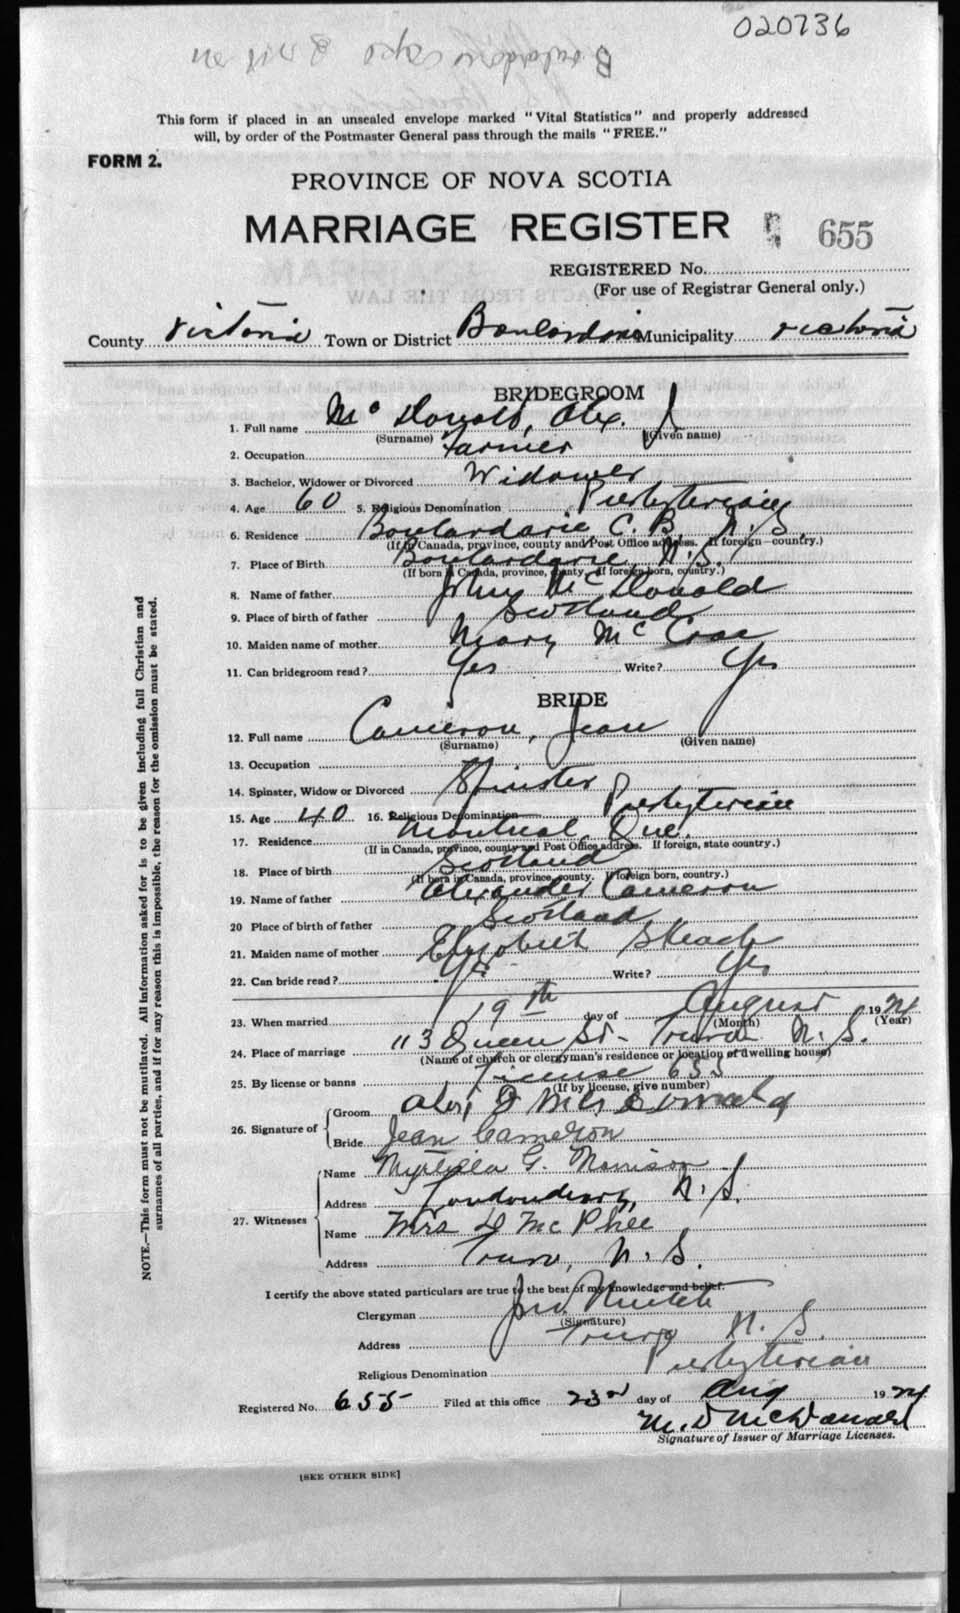 020736
This form if placed in an unsealed envelope marked "Vital Statistics" and properly addressed
will, by order of the Postmaster General pass through the mails "FREE."
FORM 2.
PROVINCE OF NOVA SCOTIA
MARRIAGE REGISTER 655
REGISTERED No.
(For use of Registrar General only.)
County Victoria Town or District Boulardarie Municipality Victoria
BRIDEGROOM
1. Full name McDonald, Alex. J
(Surname) (Given name)
2. Occupation Farmer
3. Bachelor, Widower or Divorced Widower
4. Age 60 5. Religious Denomination Presbyterian
6. Residence Boulardarie C. B. N. S.
(If in Canada, province, county and Post Office address. If foreign country.)
7. Place of Birth Boulardarie N. S.
(If born in Canada, province, county. If foreign born, country.)
8. Name of father John McDonald
9. Place of birth of father Scotland
10. Maiden name of mother Mary McCrae
11. Can bridegroom read? Yes Write? Yes
BRIDE
12. Full name Cameron, Jean
(Surname) (Given name)
13. Occupation
14. Spinster, Widow or Divorced Spinster
15. Age 40 16. Religious Denomination Presbyterian
17. Residence Montreal Que.
(If in Canada, province, county and Post Office address. If foreign, state country.)
18. Place of birth Scotland
(If born in Canada, province, county. If foreign born, country.)
19. Name of father Alexander Cameron
20 Place of birth of father Scotland
21. Maiden name of mother Elizabeth
22. Can bride read? Yes Write? Yes
23. When married 19th day of August 1924
(Month) (Year)
24. Place of marriage 113 Queen St. Truro N. S.
(Name of church or clergyman's residence or location of dwelling house)
25. By license or banns License 655
(If by license, give number)
26. Signature of
Groom Alex J McDonald
Bride Jean Cameron
27. Witnesses
Name G. Morrison
Address Londonderry, N. S.
Name Mrs D McPhee
Address Truro, N. S.
I certify the above stated particulars are true to the best of my knowledge and belief.
Clergyman Jno.
(Signature)
Address Truro N. S.
Religious Denomination Presbyterian
Registered No. 655 Filed at this office 23rd day of Aug 1924
M. D McDonald
Signature of Issuer of Marriage Licenses.
[SEE OTHER SIDE]
NOTE.—This form must not be mutilated. All information asked for is to be given including full Christian and
surnames of all parties, and if for any reason this is impossible, the reason for the omission must be stated.